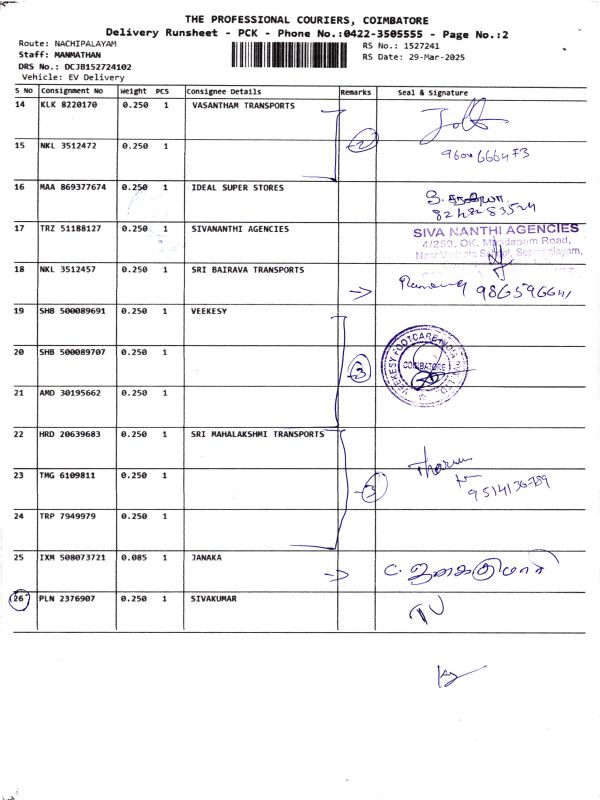 THE PROFESSIONAL COURIERS, COIMBATORE
Delivery Runsheet - PCK - Phone No.:0422-3505555 - Page No.:2
Route: NACHIPALAYAM
RS No.: 1527241
Staff: MANMATHAN
RS Date: 29-Mar-2025
DRS No.: DCJB152724102
Vehicle: EV Delivery
S No Consignment No Weight PCS Consignee Details Remarks Seal & Signature
14 KLK 8220170 0.250 1 VASANTHAM TRANSPORTS
2
15 NKL 3512472 0.250 1
16 MAA 869377674 0.250 1 IDEAL SUPER STORES
17 TRZ 51188127 0.250 1 SIVANANTHI AGENCIES
SIVA NANTHI AGENCIES
4/250, OK. Mandapam Road,
18 NKL 3512457 0.250 1 SRI BAIRAVA TRANSPORTS
19 SHB 500089691 0.250 1 VEEKESY
20 SHB 500089707 0.250 1
3
VEEKESY FOOTCARE INDIA PVT. LTD.
COIMBATORE
21 AMD 30195662 0.250 1
22 HRD 20639683 0.250 1 SRI MAHALAKSHMI TRANSPORTS
23 TMG 6109811 0.250 1
3
24 TRP 7949979 0.250 1
25 IXM 508073721 0.085 1 JANAKA
26 PLN 2376907 0.250 1 SIVAKUMAR